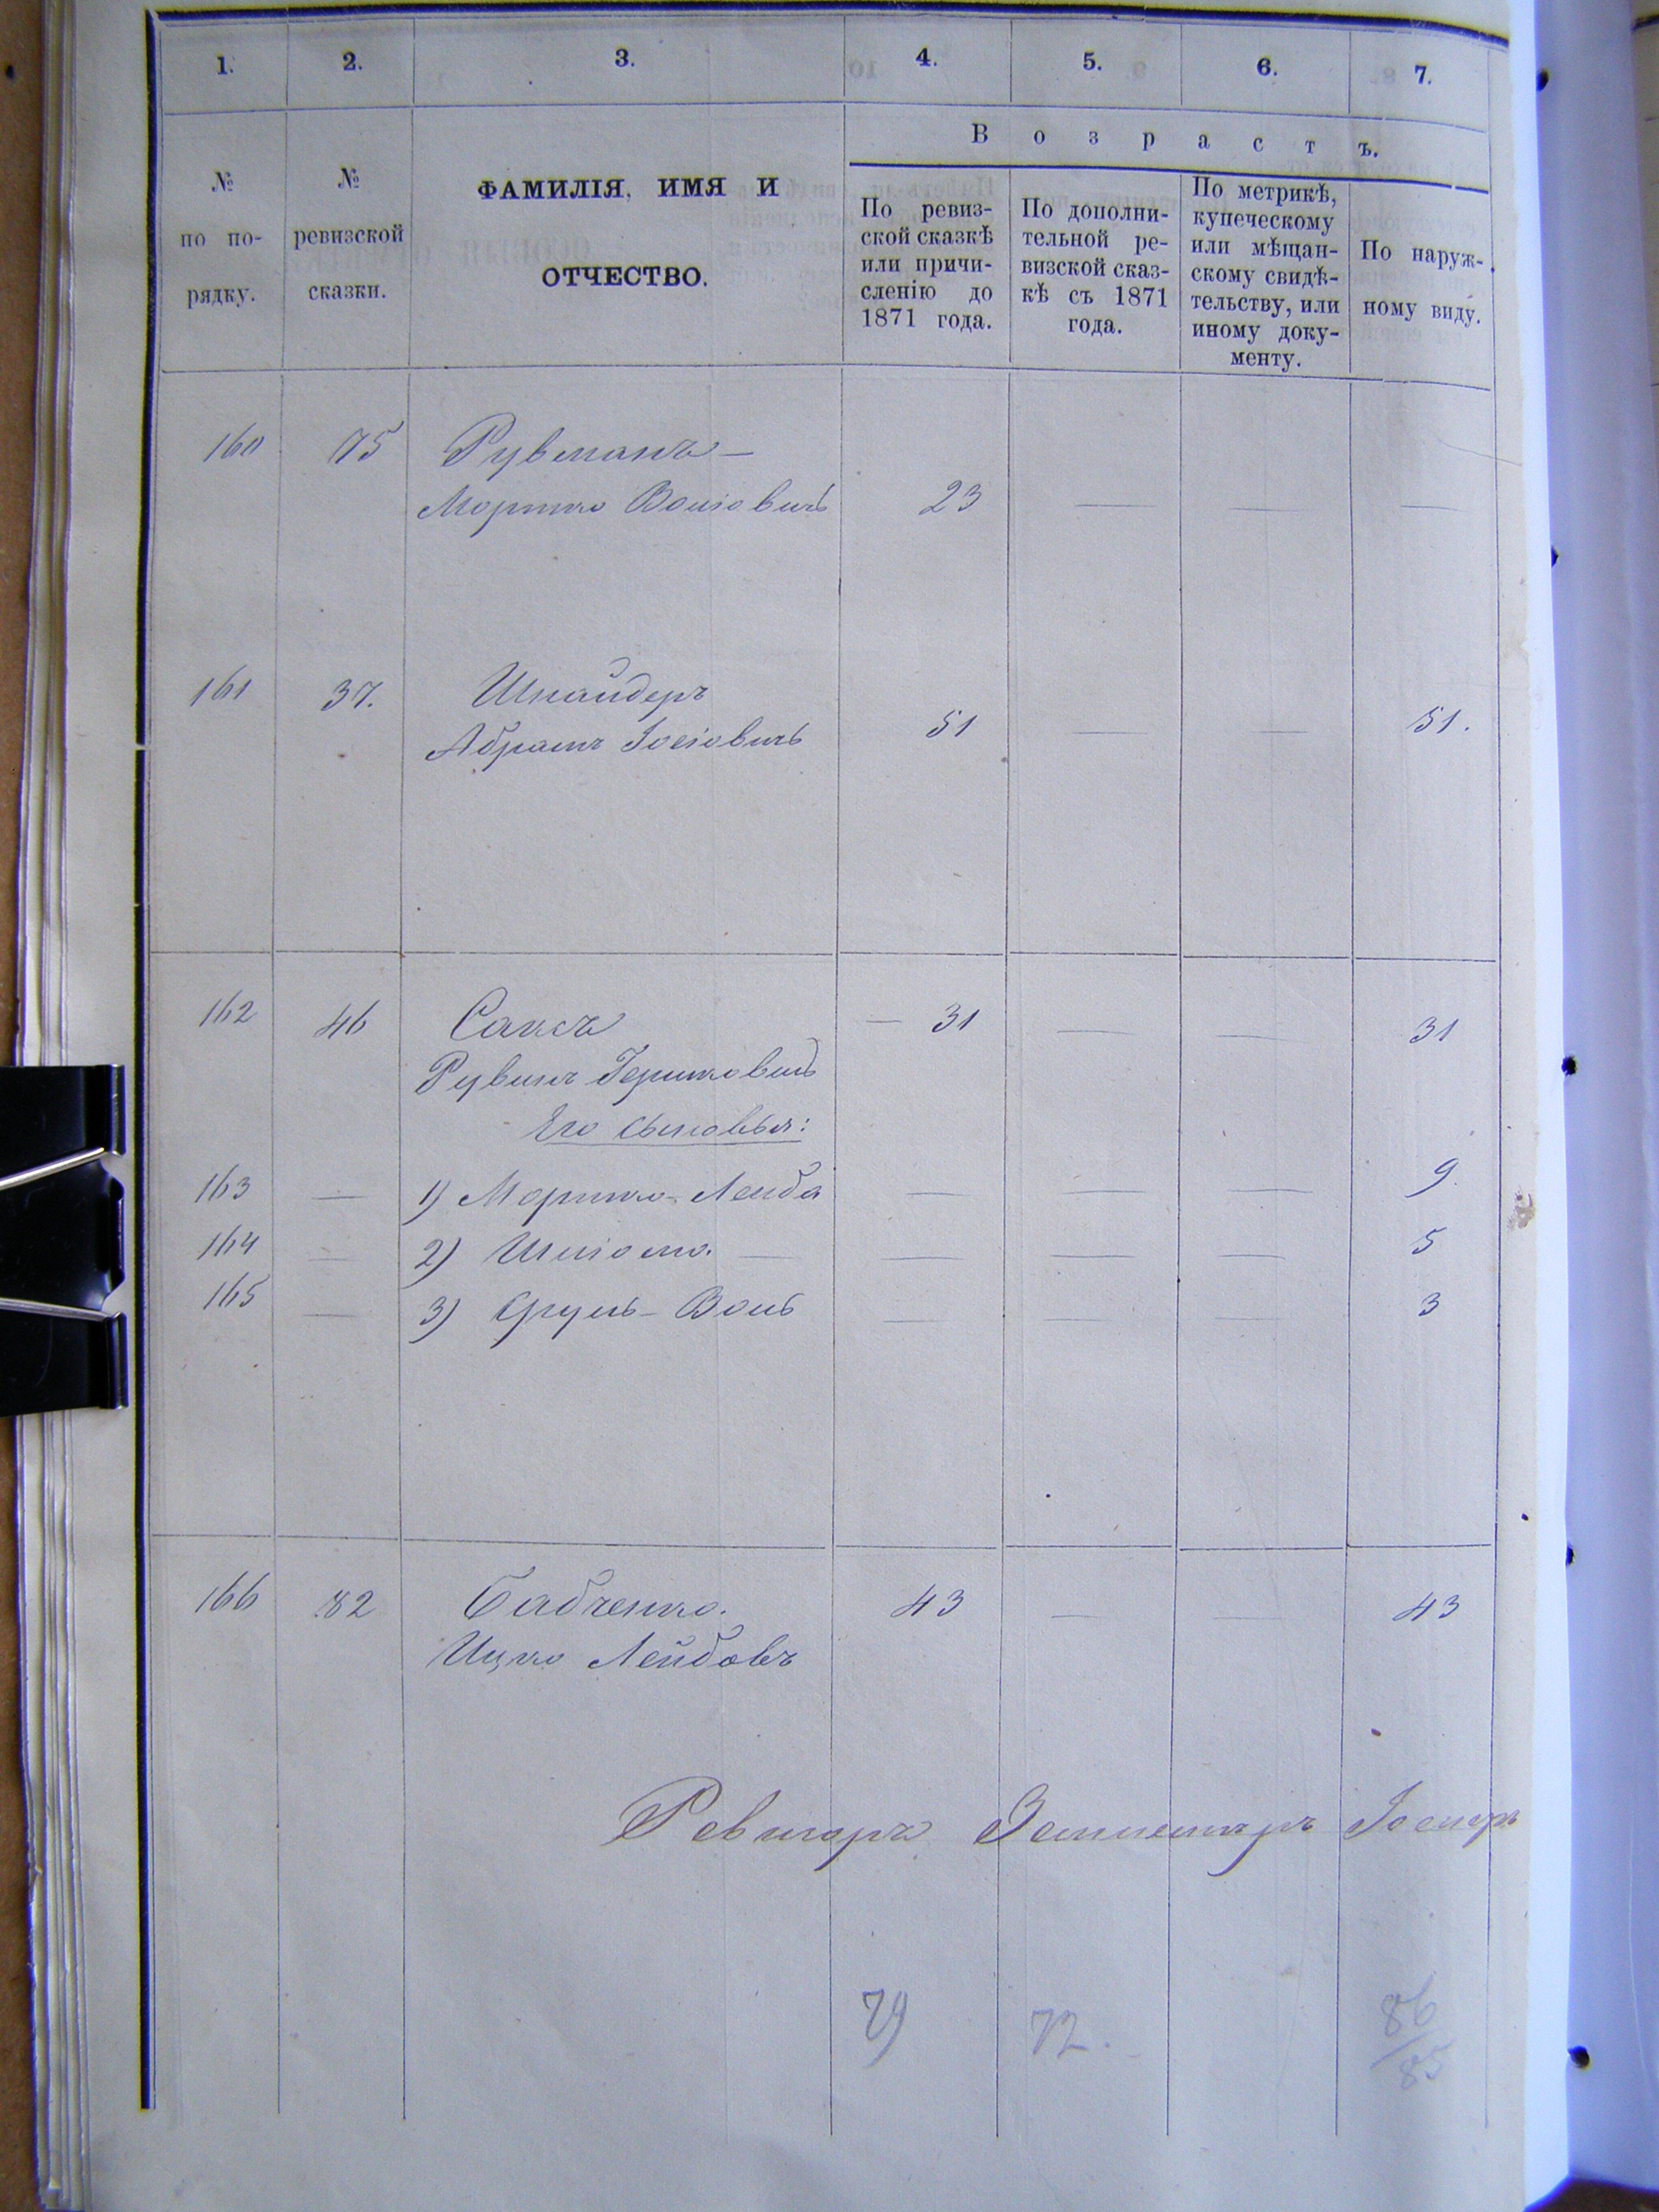 1. 2. 3. 4. 5. 6. 7.
№ по по-рядку.
№ ревизской сказки.
ФАМИЛІЯ, ИМЯ И
ОТЧЕСТВО.
Возрастъ.
По ревиз-
ской сказкѣ
или причи-
сленію до
1871 года.
По дополни-
тельной ре-
визской сказ-
кѣ съ 1871
года.
По метрикѣ,
купеческому
или мѣщан-
скому свидѣ-
тельству, или
иному доку-
менту.
По наруж-
ному виду.
160 75 Рувманъ —
Моршко Вольовичъ 23 — — —
161 37. Шнайдеръ
Абрамъ Іосіовичъ 51 — — 51.
162 46 Саксъ — 31 — — 31
Рувинъ Гершковичъ
Его сыновья:
163 — 1) Моршко-Лейба — — — 9.
164 — 2) Шліомо. — — — — 5
165 — 3) Сруль-Воль — — — 3
166 82 Бабченко. 43 — — 43
Ицко Лейбовъ
79 72. 86
85